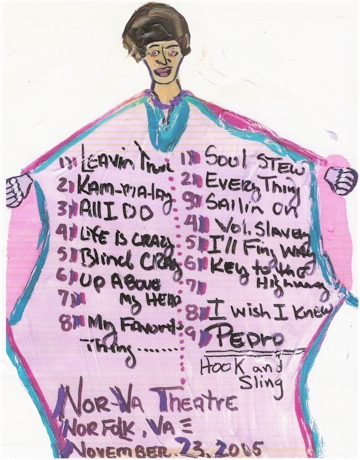 1) Leavin' Trunk
2) Kam-ma-lay
3) All I DO
4) Life is crazy
5) Blind Crazy
6) Up Above
7) My Head
8) My Favorite
Thing......
1) Soul Stew
2) Every Thing
3) Sailin on
4) Vol. Slavery
5) I'll Find Way
6) Key to the
7) Highway
8 I wish I Knew
9 Pedro
Hook and
Sling
Nor Va Theatre
Norfolk, VA
November. 23, 2005